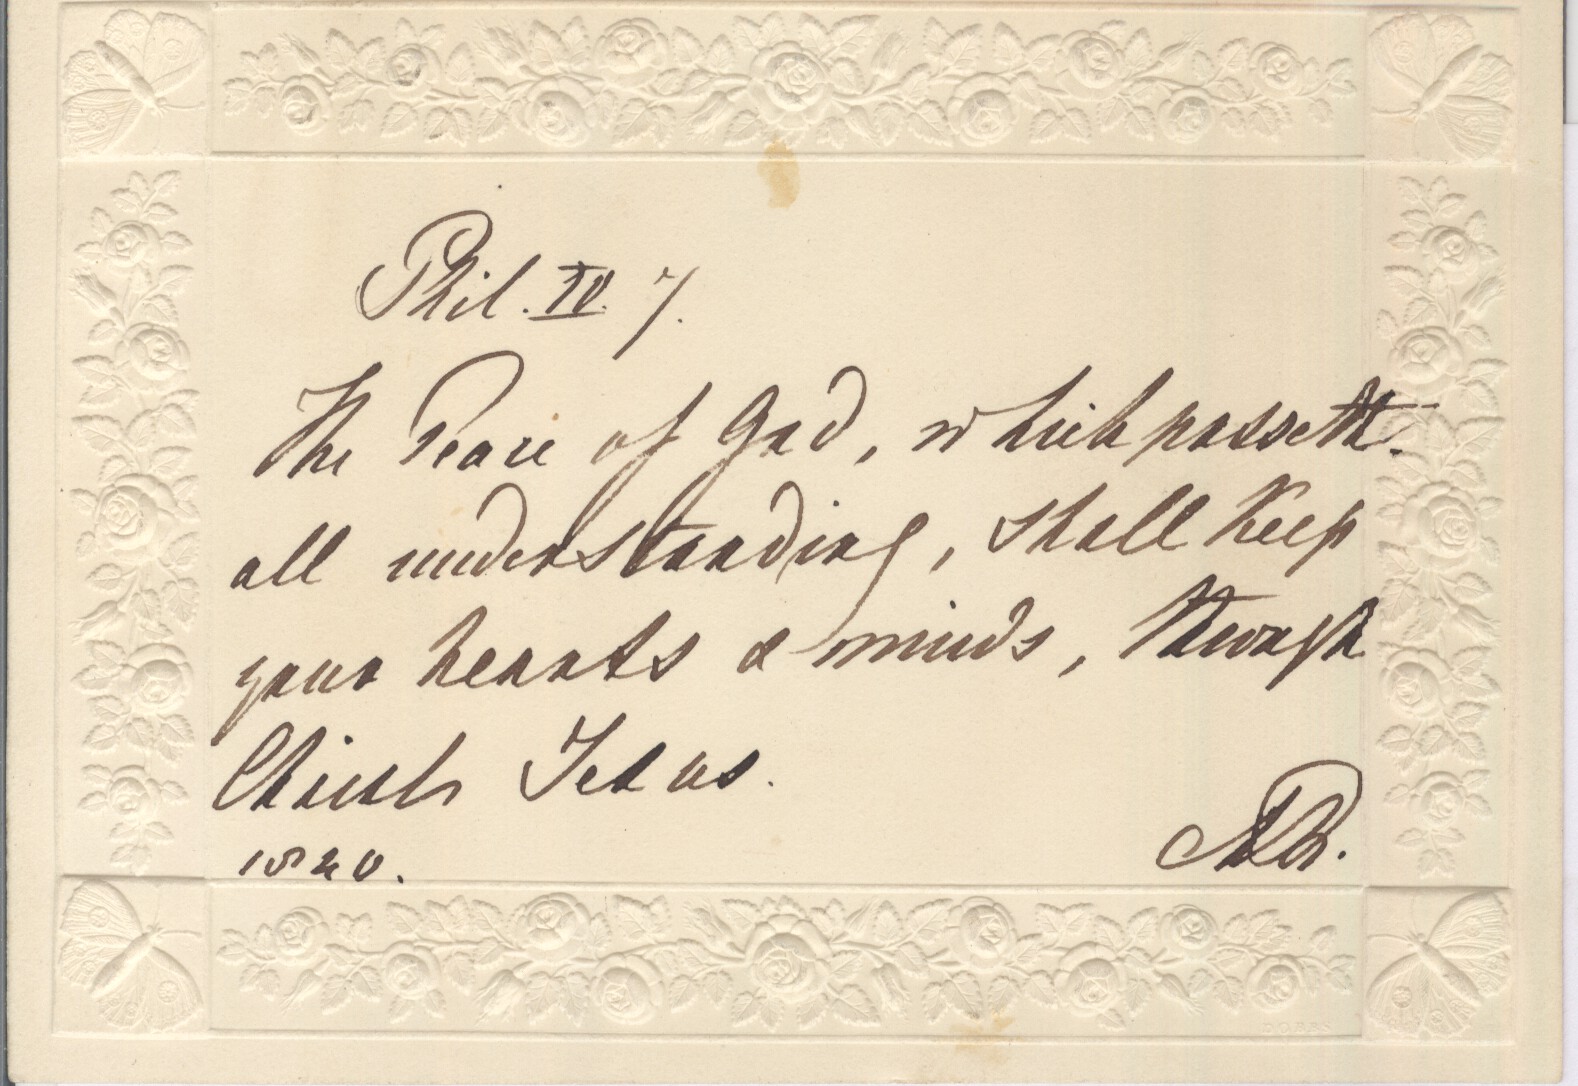 Phil. IV. 7.
The Peace of God, which passeth
all understanding, shall keep
your hearts & minds, through
Christ Jesus.
1840.
DOBBS